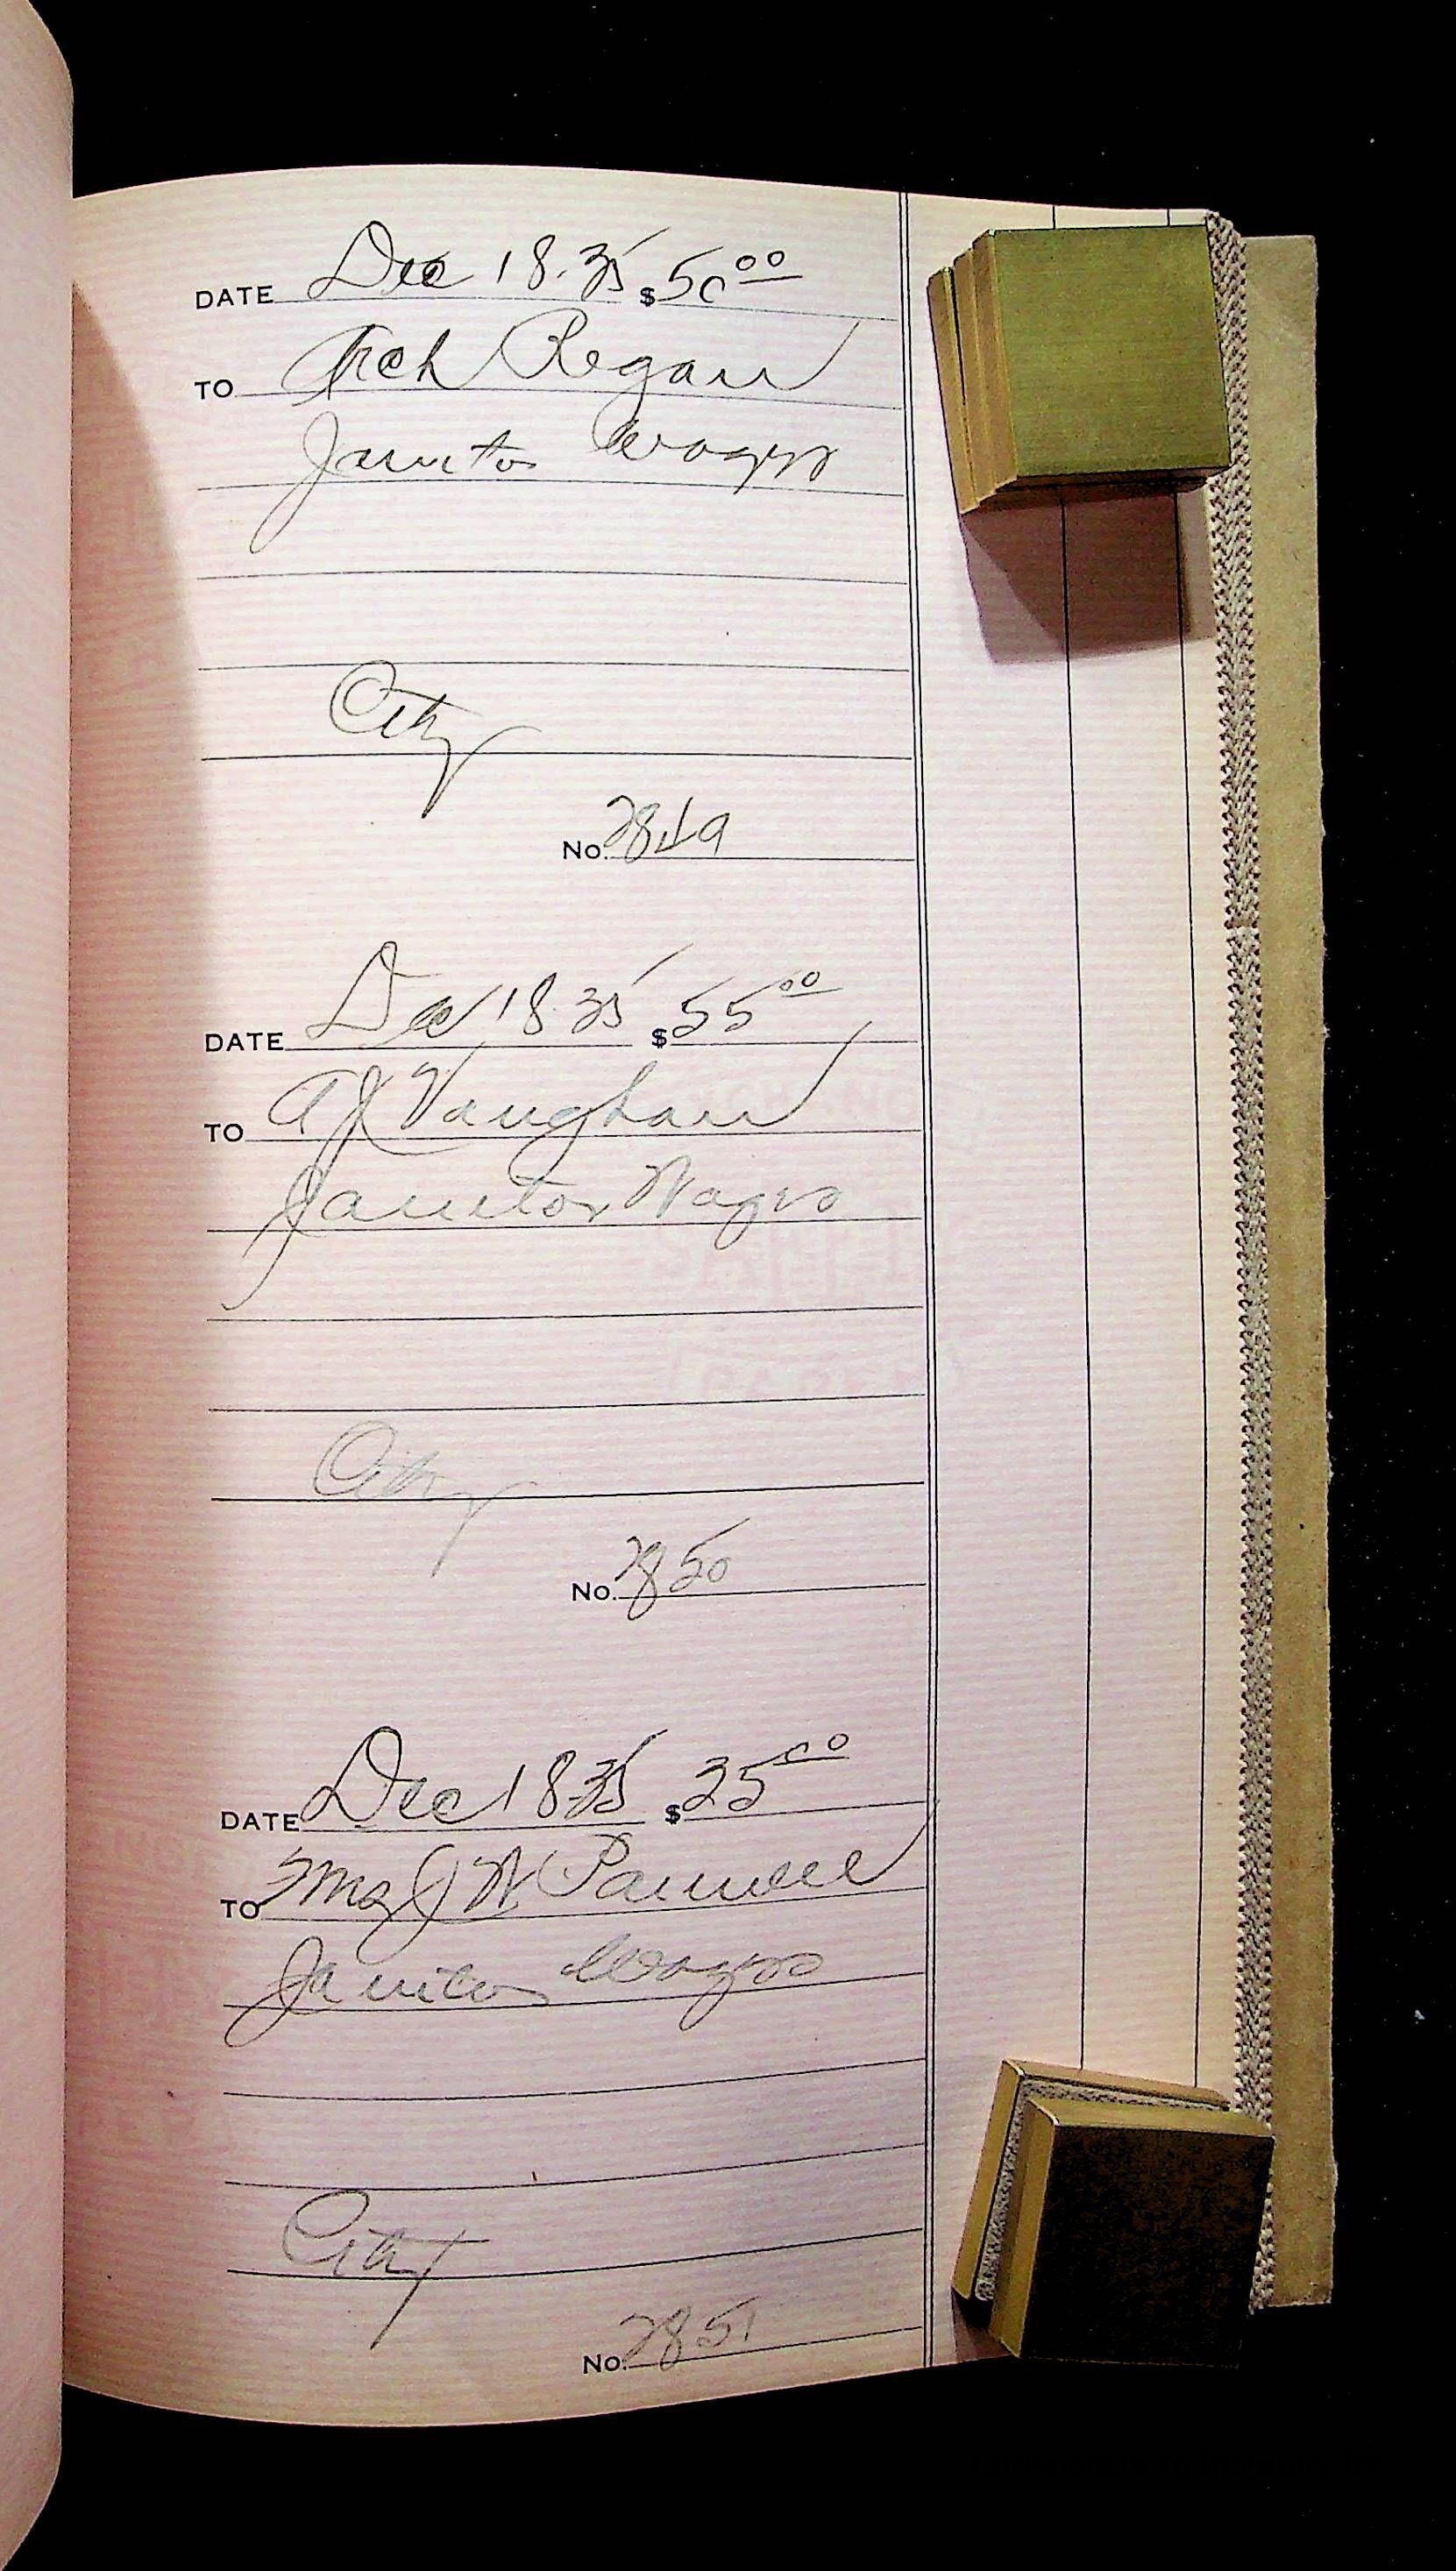 DATE Dec 18. 35 $ 50 00
TO Arch Regan
Janitor Wages
City
No. 2849
DATE Dec 18 35 $ 55 00
TO A J Vaughan
Janitor Wages
City
No. 2850
DATE Dec 18 35 $ 25 00
TO Mrs J W
Janitor Wages
City
No. 2851